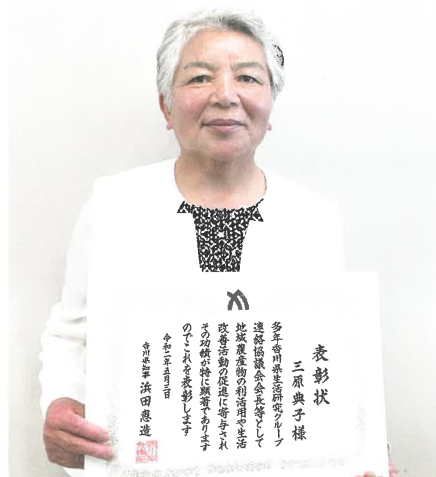 表彰状
三原典子様
多年香川県生活研究グループ
連絡協議会会長等として
地域農産物の利活用や生活
改善活動の促進に寄与され
その功績が特に顕著であります
のでこれを表彰します
令和二年五月三日
香川県知事 浜田恵造